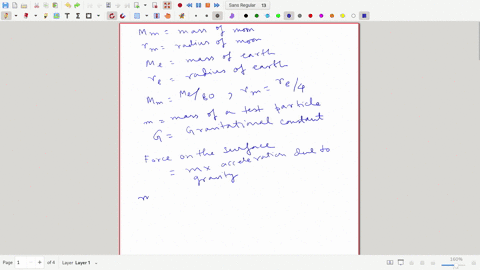 Sans Regular 13
Mm = mass of moon
rm = radius of moon
Me = mass of earth
re = radius of earth
Mm = Me/80 , rm = re/4
m = mass of a test particle
G = Gravitational constant
Force on the surface
= m x acceleration due to
gravity
m
Page 1 of 6 Layer Layer 1
160%